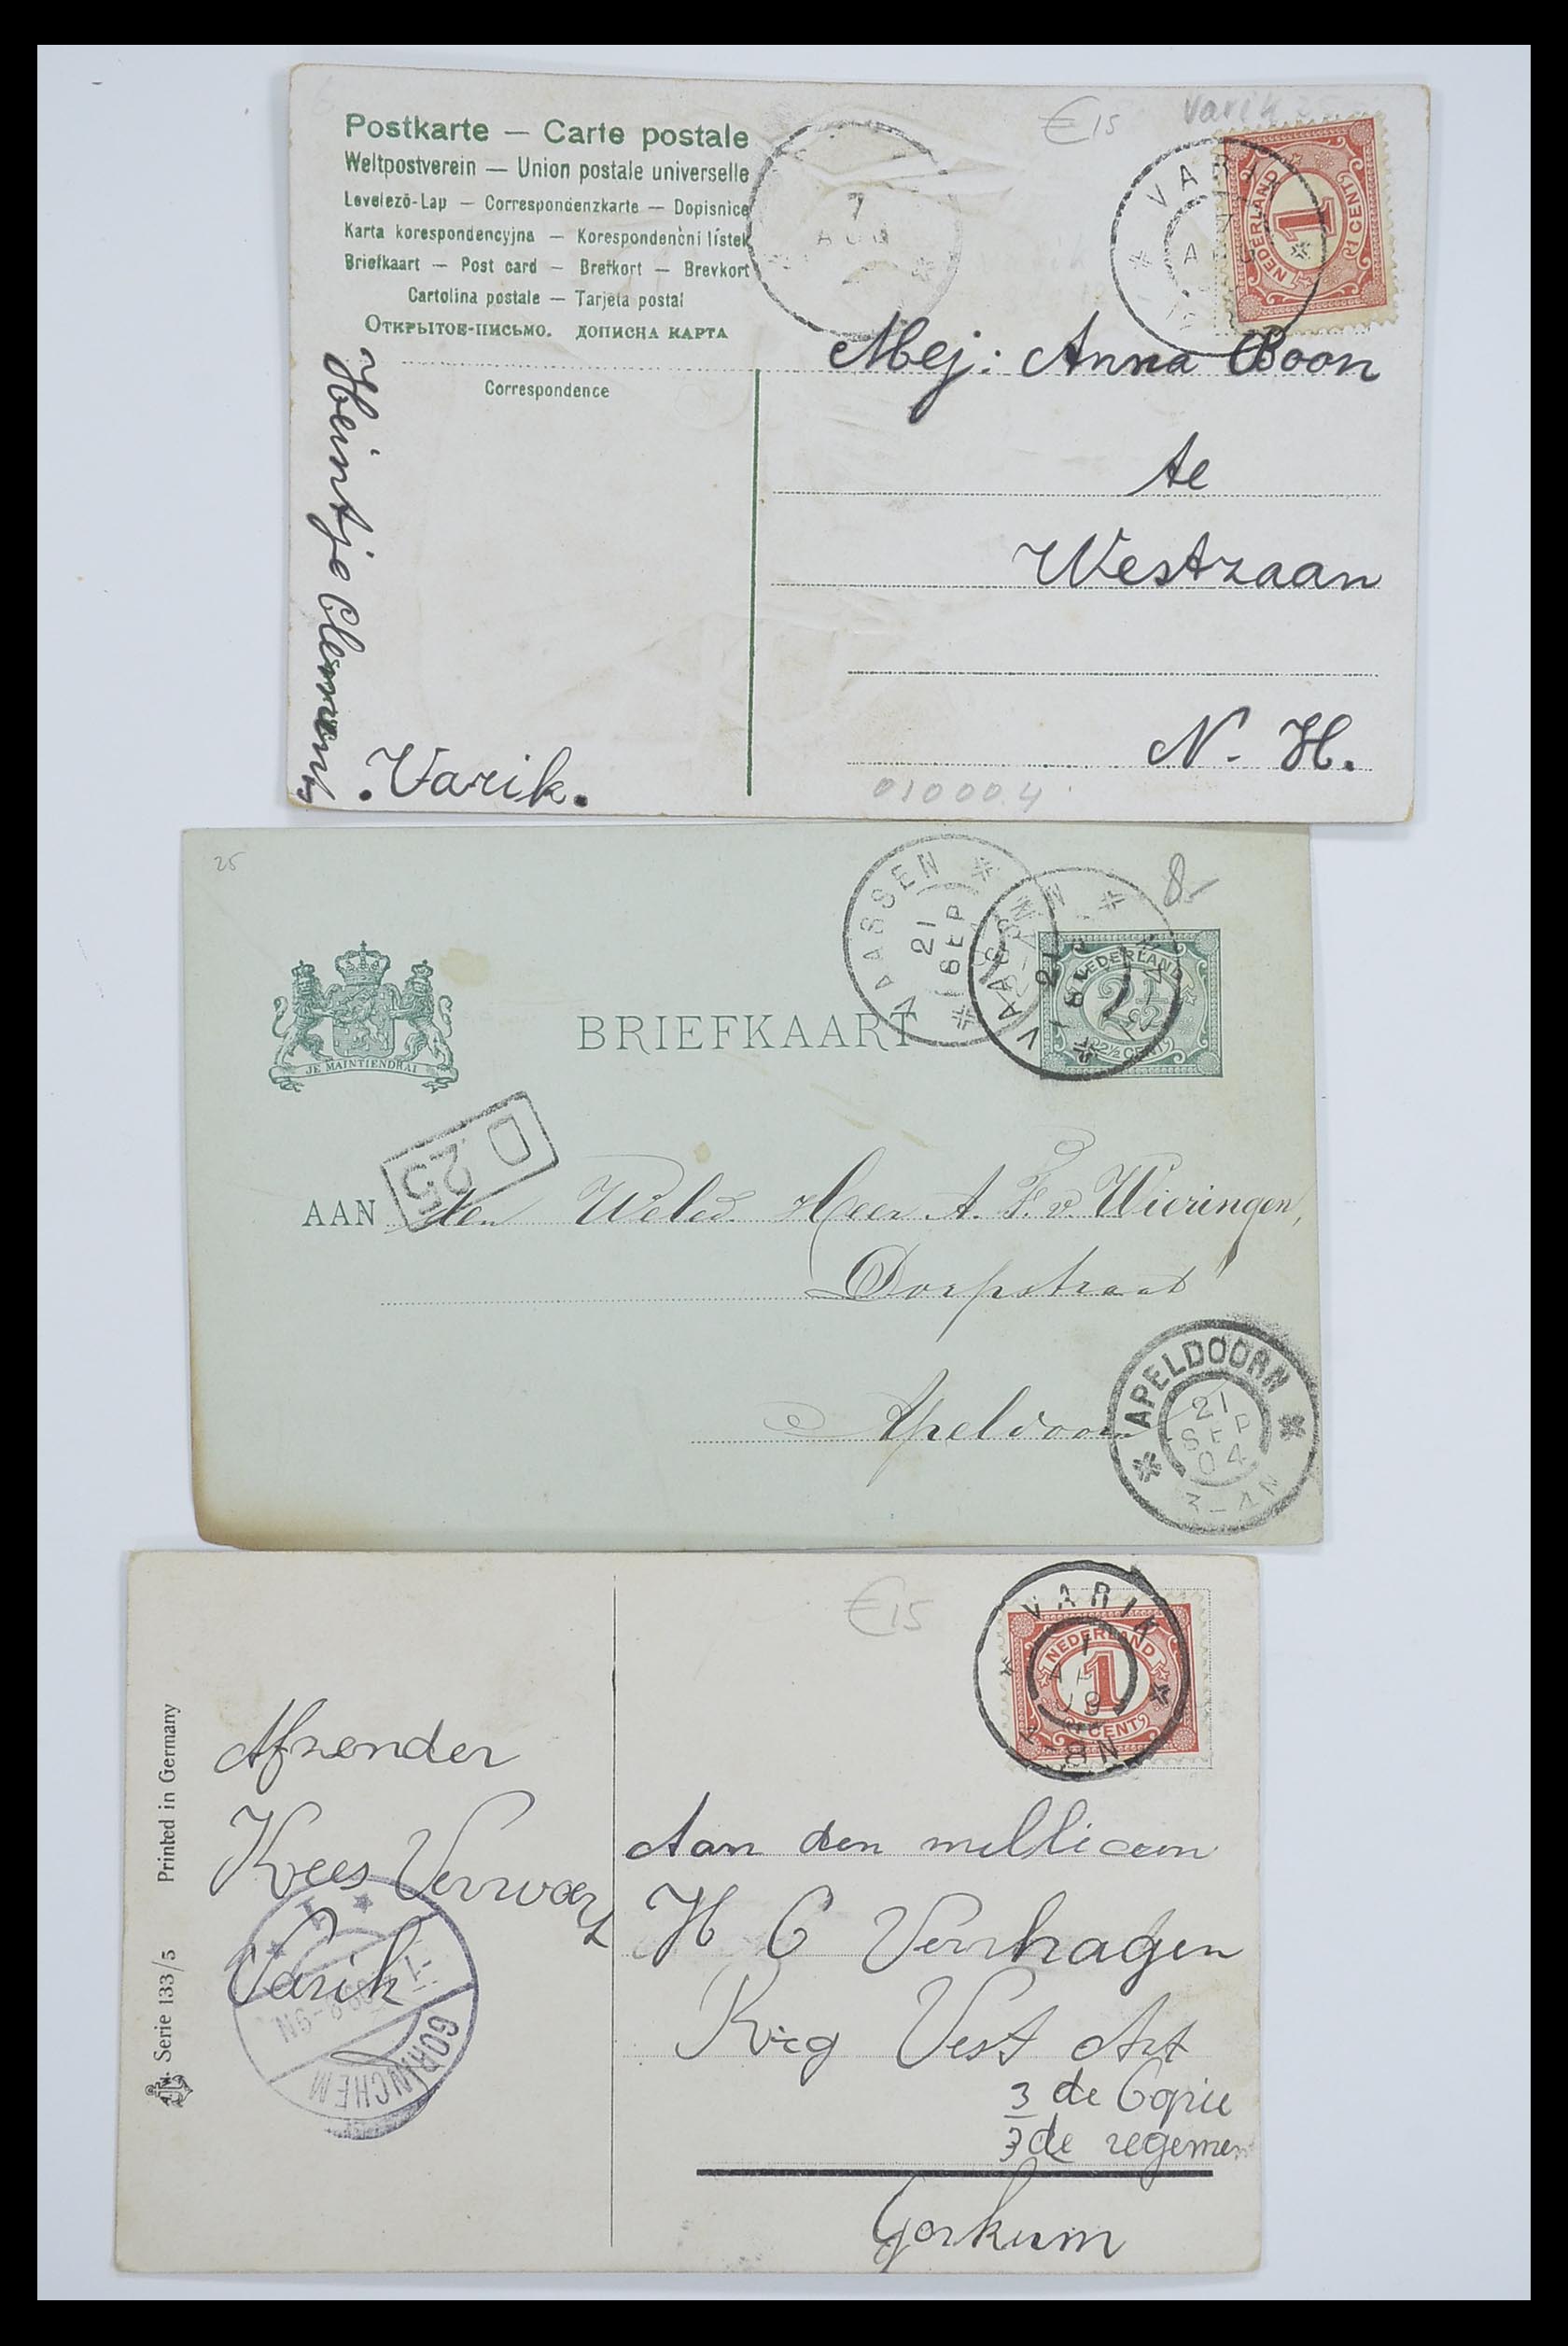 Postkarte — Carte postale
Weltpostverein — Union postale universelle
Levelező-Lap — Correspondenzkarte — Dopisnice
Karta korespondencyjna — Korespondenčni lístek
Briefkaart — Post card — Brefkort — Brevkort
Cartolina postale — Tarjeta postal
Открытое-письмо. дописна карта
Correspondence
€15
Varik
7
AUG
VARIK
NEDERLAND
1
CENT
Mej: Anna Boon
te
Westzaan
N. H.
Heintje Clemens
.Varik.
010004
25
8,-
JE MAINTIENDRAI
BRIEFKAART
VAASSEN
21
SEP
VAASSEN
21
NEDERLAND
2½
2½ CENT
D
25
AAN den Weled. Heer A. F. v. Wieringen,
Dorpstraat
Apeldoorn
APELDOORN
21
SEP
04
3-4N
€15
VARIK
1
NEDERLAND
1
CENT
Serie 133/5 Printed in Germany
Afzender
Kees Verwoert
Varik
GORINCHEM
Aan den millicien
H C Verhagen
Kreg Vest Art
3 de Copie
3 de regemen
Gorkum